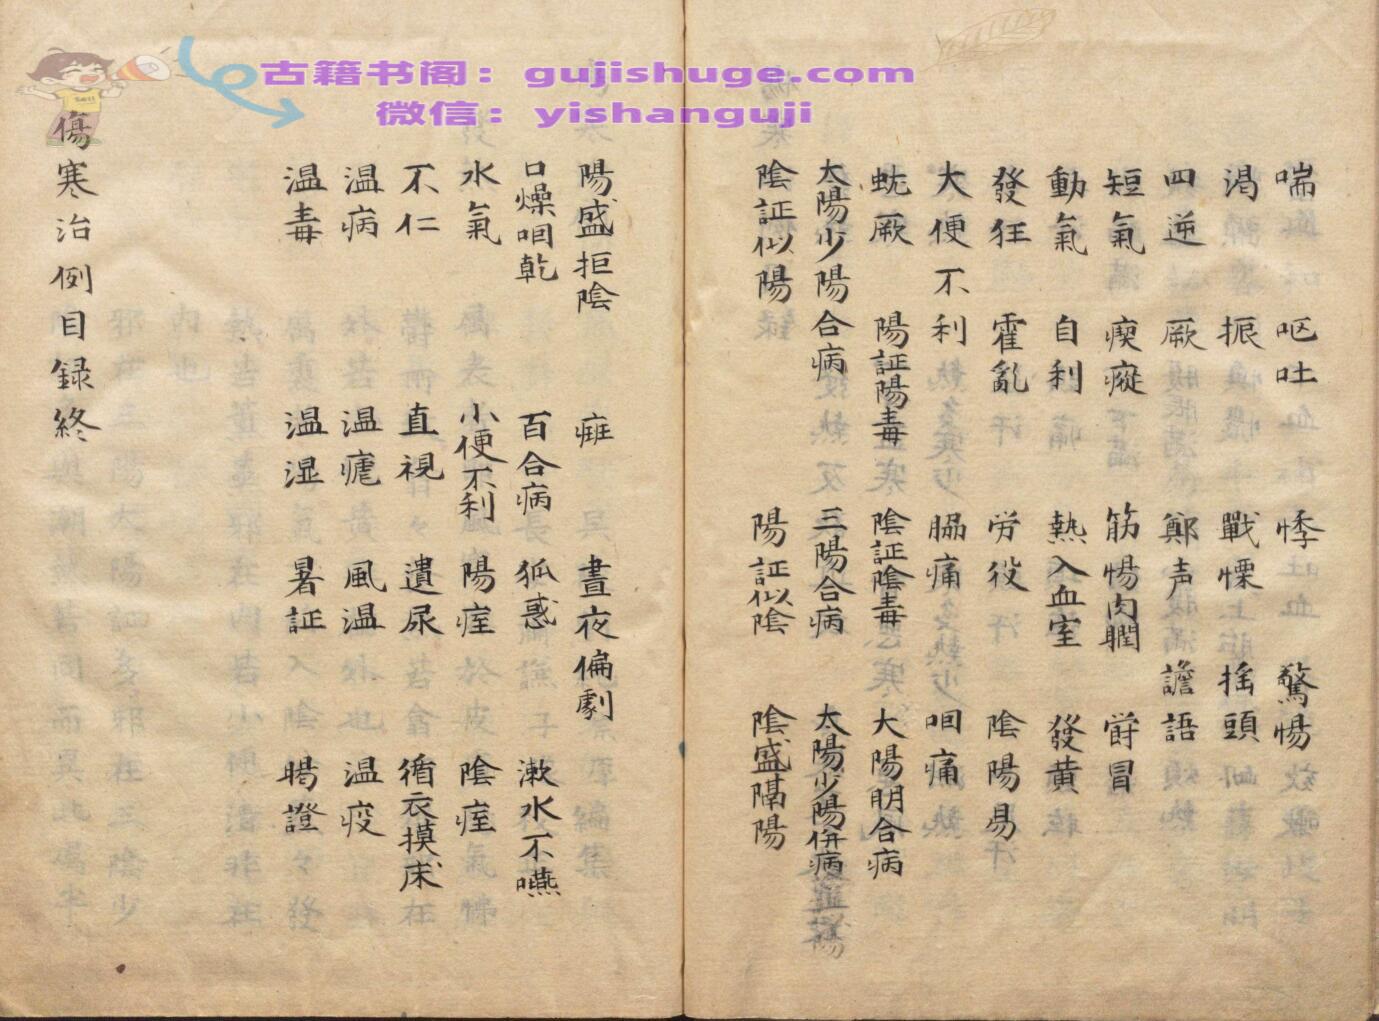 古籍书阁：gujishuge.com
微信：yishanguji
喘 呕吐 悸 驚惕
渴 振 戰慄 摇頭
四逆 厥 鄭声 譫語
短氣 瘈瘲 筋惕肉瞤 欝冒
動氣 自利 熱入血室 發黄
發狂 霍亂 労役 陰陽易
大便不利 脇痛 咽痛
蚘厥 陽証陽毒 陰証陰毒 太陽明合病
太陽少陽合病 三陽合病 太陽少陽併病
陰証似陽 陽証似陰 陰盛隔陽
陽盛拒陰 疟 晝夜偏劇
口燥咽乾 百合病 狐惑 漱水不嚥
水氣 小便不利 陽痓 陰痓
不仁 直視 遺尿 循衣摸床
温病 温瘧 風温 温疫
温毒 温湿 暑証 暍證
傷寒治例目録終